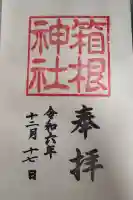 奉拝
箱根
神社
令和六年
十二月十七日